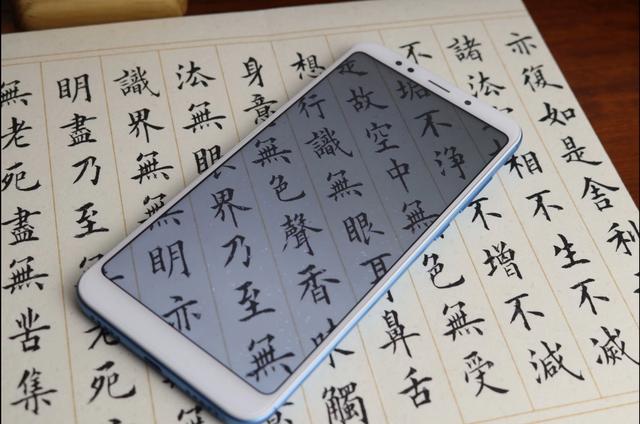 亦復如是舍利
諸法空相不生不滅
不垢不淨不增不減
是故空中無色無受
想行識無眼耳鼻舌
身意無色聲香味觸
法無眼界乃至無
識界無無明亦
明盡乃至老死
無老死盡無苦集